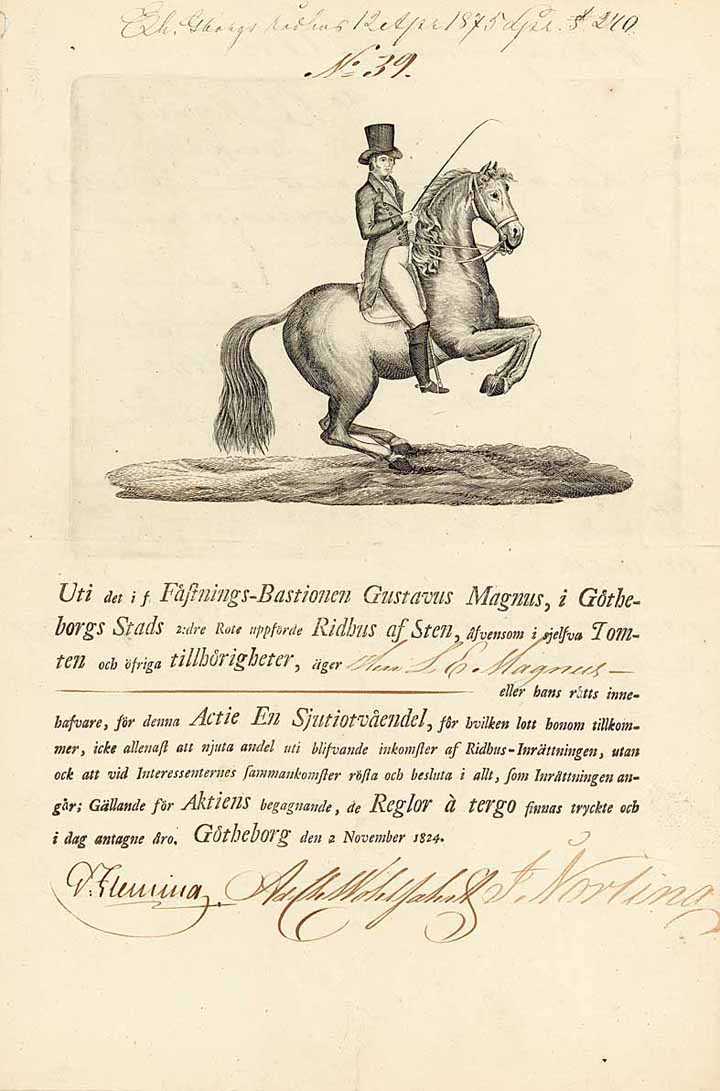 Gborgs Rådhus 12 Apr 1875 § 240.
No 39.
Uti det i f. Fåſtnings-Bastionen Gustavus Magnus, i Götheborgs
borgs Stads 2:dre Rote uppförde Ridhus af Sten, åfvensom i sjelfva Tom-
ten och öfriga tillhörigheter, åger Herr L E Magnus
eller hans råtts inne-
hafvare, för denna Actie En Sjutiotvåendel, för hvilken lott honom tillkom-
mer, icke allenaſt att njuta andel uti blifvande inkomſter af Ridhus-Inråttningen, utan
ock att vid Interessenternes ſammankomſter röſta och besluta i allt, ſom Inråttningen an-
går; Gållande för Aktiens begagnande, de Reglor à tergo finnas tryckte och
i dag antagne åro. Götheborg den 2 November 1824.
D. Fleming. J. Norling